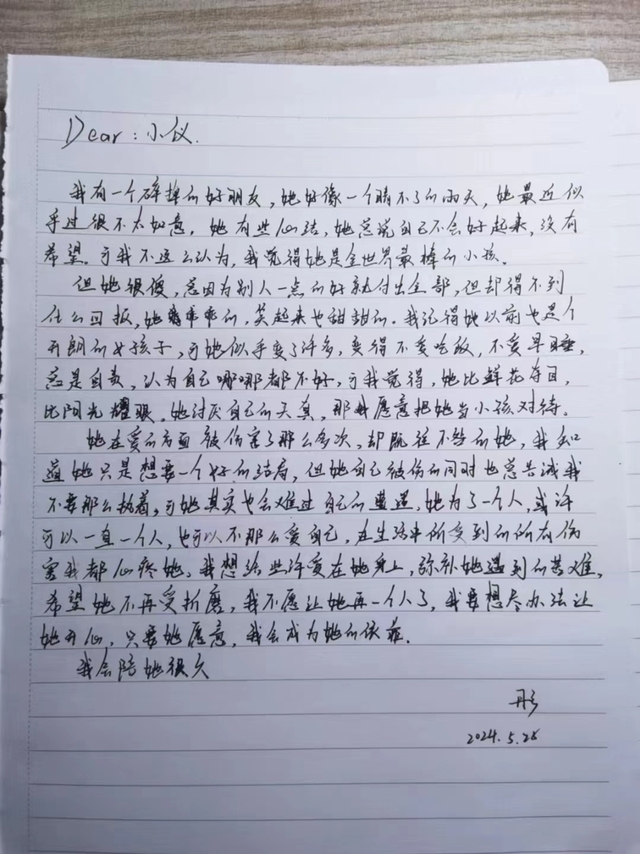 Dear:小仪.
我有一个碎掉的好朋友,她好像一个晴不了的雨天,她最近似
乎过很不太如意,她有些心结,她总说自己不会好起来,没有
希望。可我不这么认为,我觉得她是全世界最棒的小孩。
但她很傻,总因为别人一点的好就付出全部,但却得不到
任么回报,她乖乖的,笑起来也甜甜的。我记得她以前也是个
开朗的女孩子,可她似乎变了许多,变得不爱吃饭,不爱早睡,
总是自责,认为自己哪哪都不好,可我觉得,她比鲜花夺目,
比阳光耀眼。她讨厌自己的天真,那我愿意把她当小孩对待。
她在爱的方面被伤害了那么多次,却既往不咎的她,我知
道她只是想要一个好的结局,但她自己被伤的同时也总告诫我
不要那么执着,可她其实也会难过自己的遭遇,她为了一个人,或许
可以一直一个人,也可以不那么爱自己,在生活中所受到的所有伤
害我都心疼她。我想给些许爱在她身上,弥补她遇到的苦难,
希望她不再受折磨,我不愿让她再一个人了,我要想尽办法让
她开心,只要她愿意,我会成为她的依靠.
我会陪她很久
彤
2024.5.28